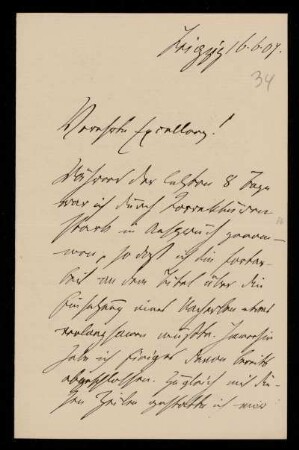 Leipzig 16.6.09.
34
Verehrte Excellenz!
Während der letzten 8 Tage
war ich durch Correkturen
stark in Anspruch genom-
men, so daß ich die Fortar-
beit an dem Artikel über die
Einsetzung eines
mußte. Immerhin
habe ich einiges davon bereits
abgeschlossen. Zugleich mit die-
sen Zeilen gestatte ich mir